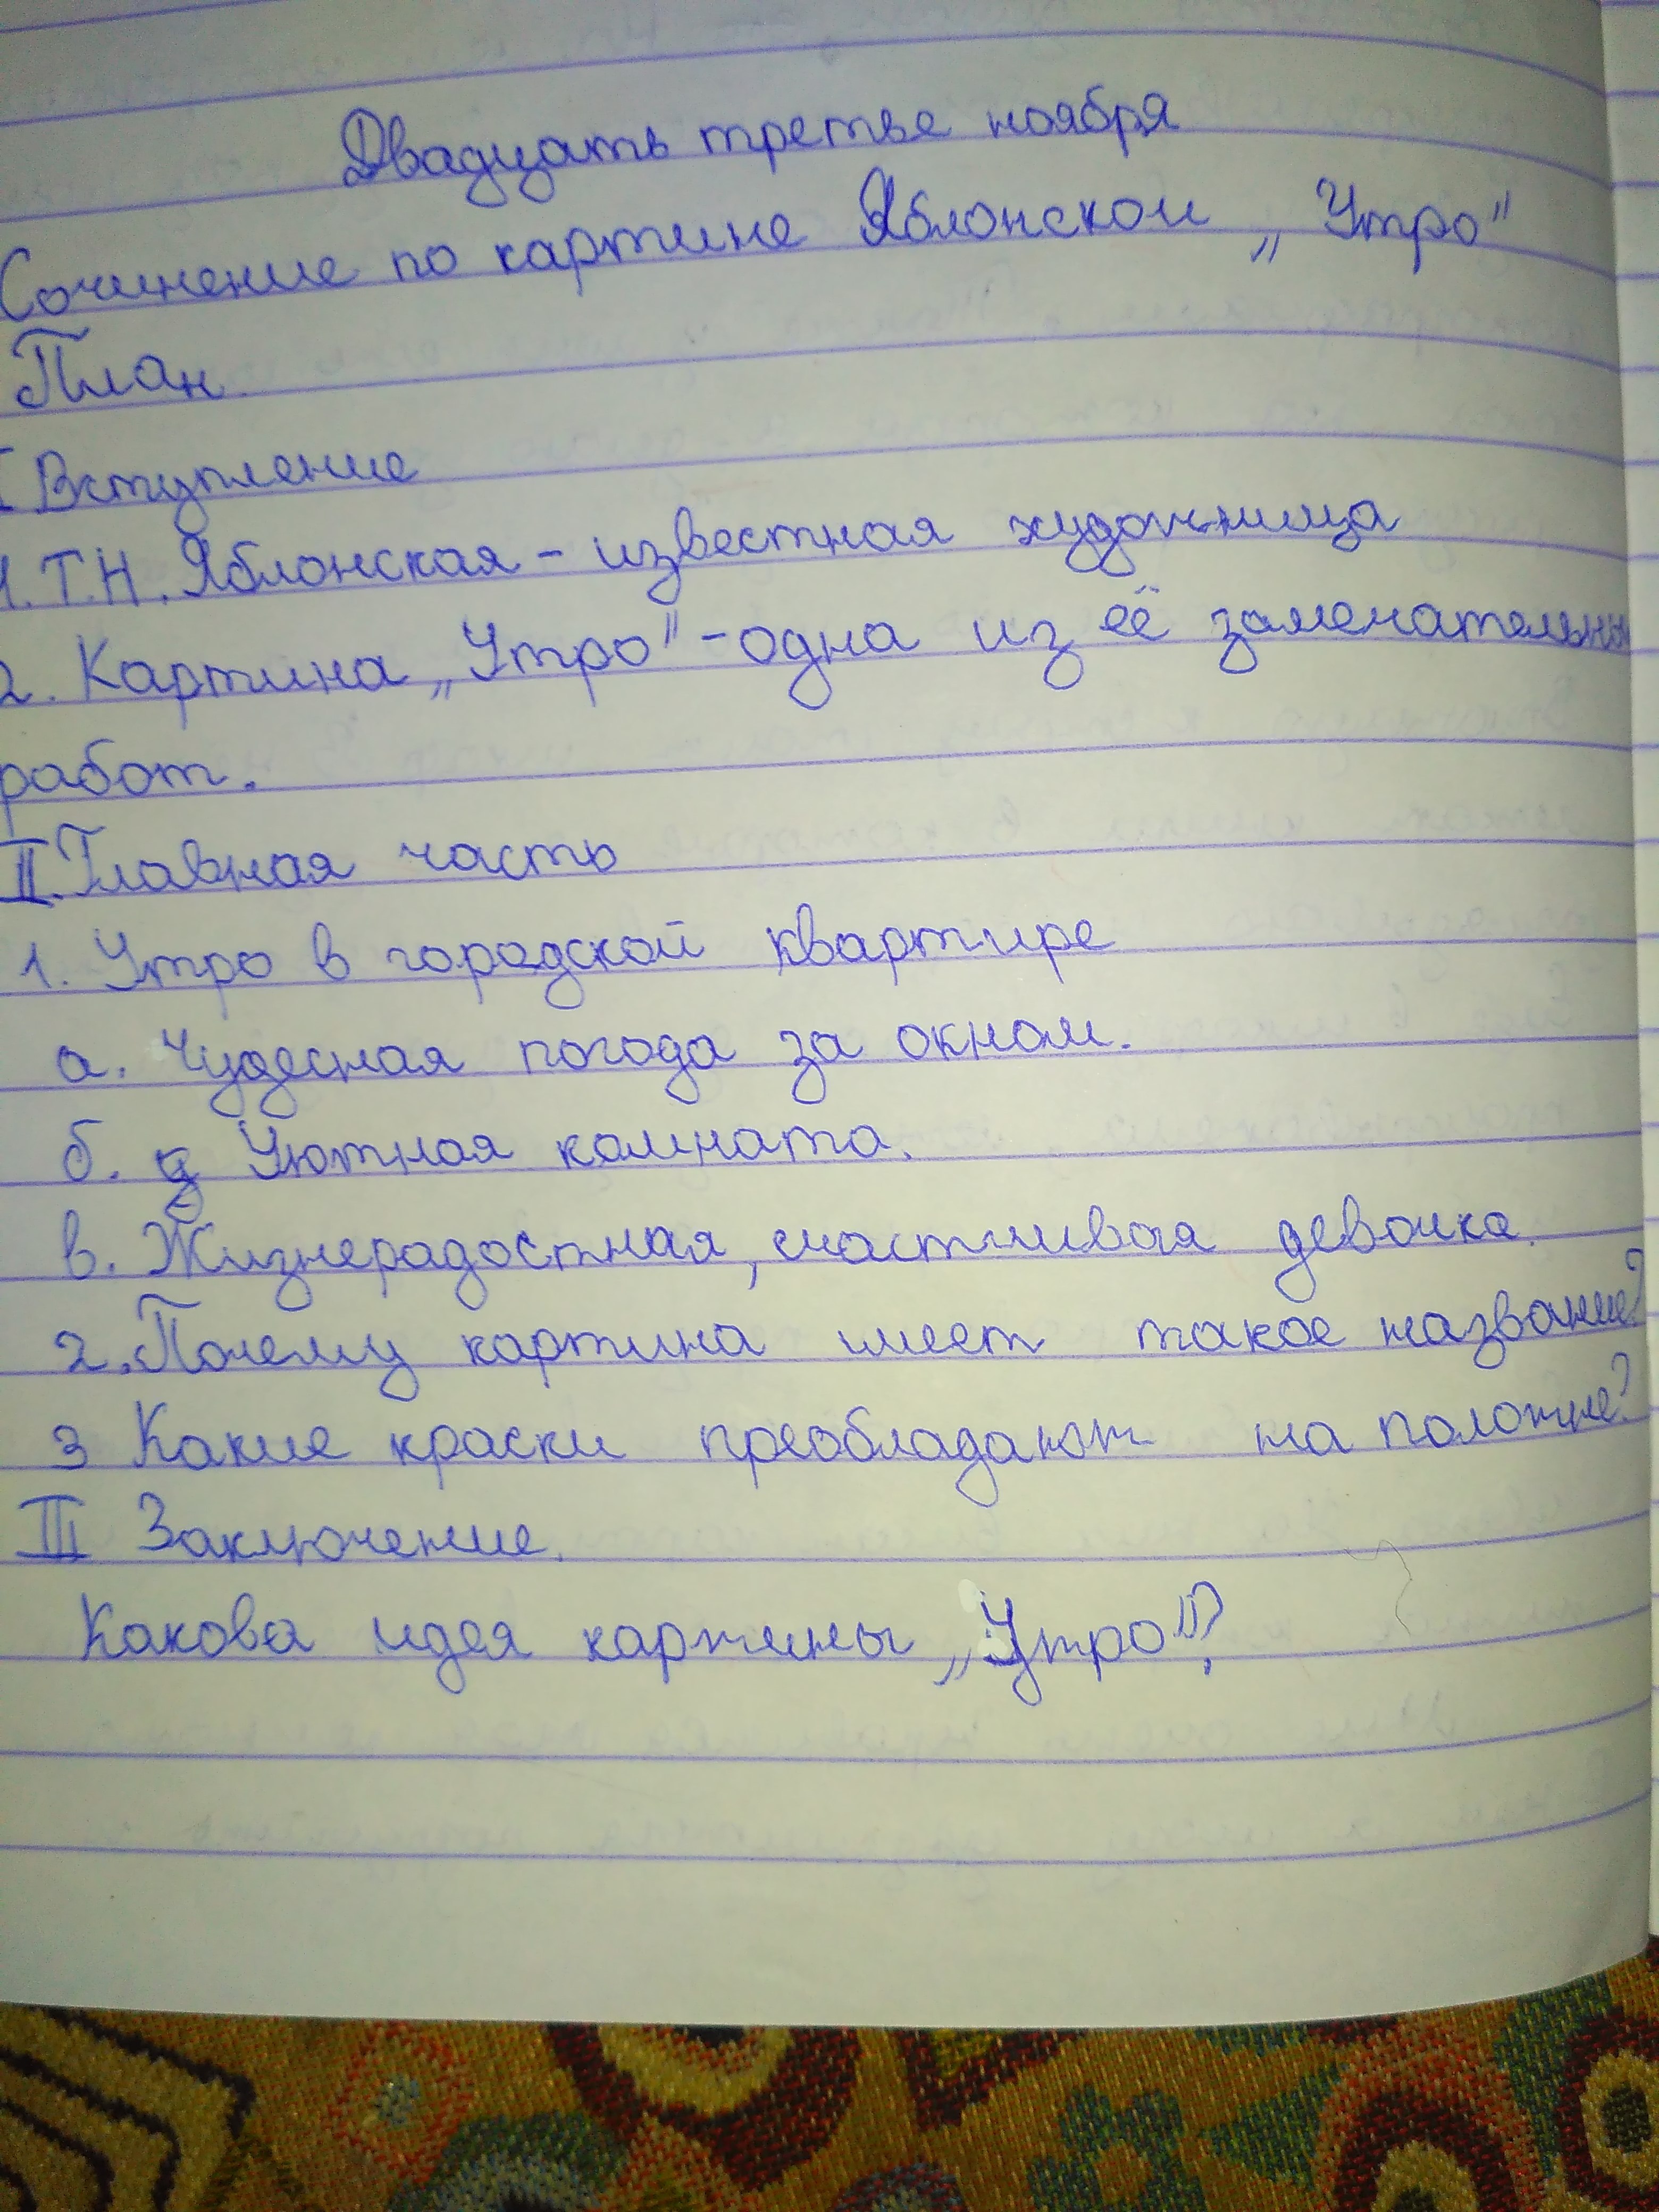 Двадцать третье ноября
Сочинение по картине Яблонской „Утро"
План.
I Вступление
1. Т.Н. Яблонская – известная художница
2. Картина „Утро" – одна из её замечательны
работ.
II. Главная часть
1. Утро в городской квартире
а. Чудесная погода за окном.
б. Уютная комната.
в. Жизнерадостная, счастливая девочка.
2. Почему картина имеет такое название?
3 Какие краски преобладают на полотне?
III Заключение.
Какова идея картины „Утро"?